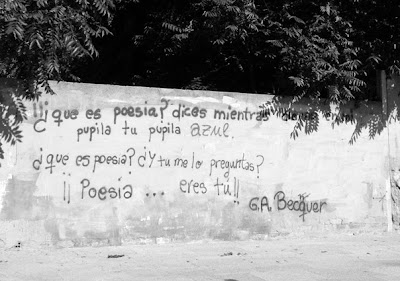 ¡¡¿que es poesia? dices mientras clavas en mi
pupila tu pupila azul.
¿que es poesia? ¿Y tu me lo preguntas?
¡¡ Poesia ... eres tu!!
G.A. Becquer